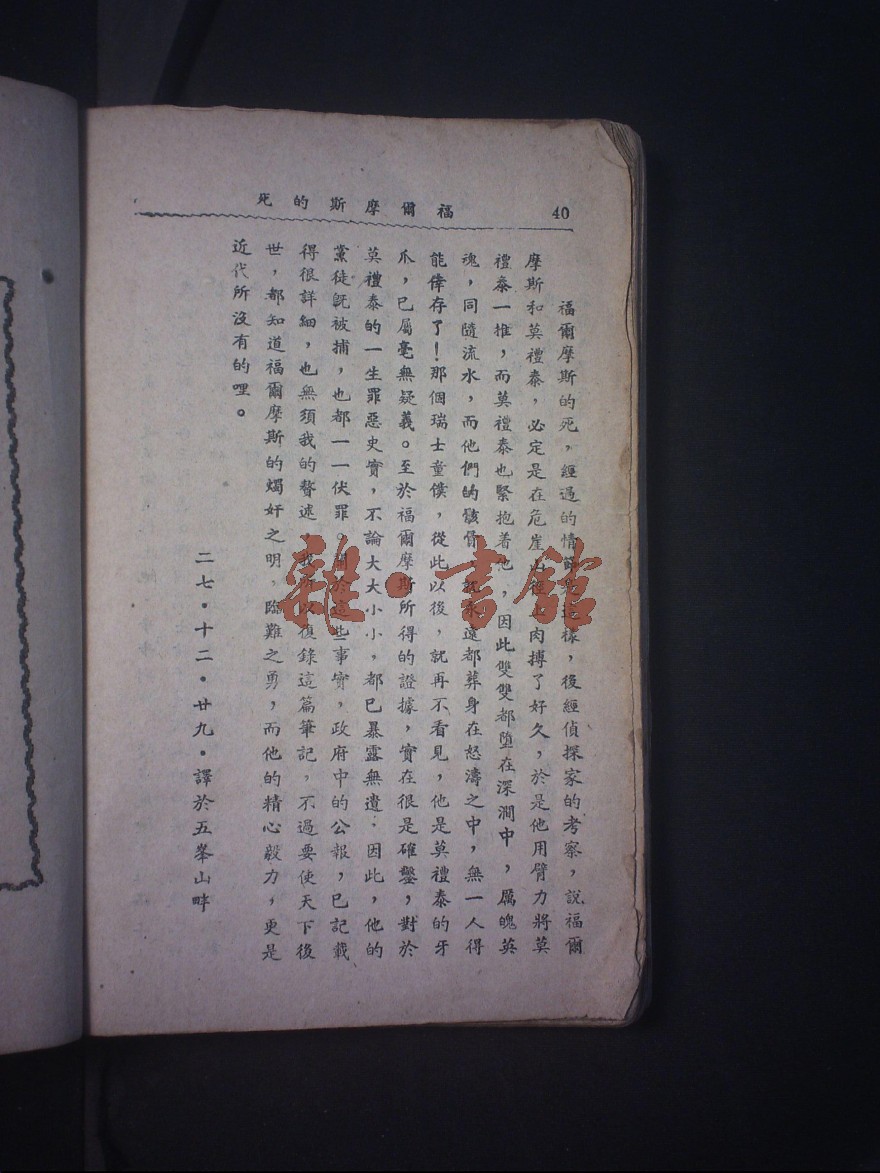 福爾摩斯的死
40
福爾摩斯的死，經過的情 是這樣，後經偵探家的考察，說福爾
摩斯和莫禮泰，必定是在危崖山徑，肉搏了好久，於是他用臂力將莫
禮泰一推，而莫禮泰也緊抱着他，因此雙雙都墮在深澗中，厲魄英
魂，同隨流水，而他們的骸骨，就永遠都葬身在怒濤之中，無一人得
能倖存了！那個瑞士童僕，從此以後，就再不看見，他是莫禮泰的牙
爪，已屬毫無疑義。至於福爾摩斯所得的證據，實在很是確鑿，對於
莫禮泰的一生罪惡史實，不論大大小小，都已暴露無遺．因此，他的
黨徒旣被捕，也都一一伏罪。關於這些事實，政府中的公報，已記載
得很詳細，也無須我的贅述 我所以復錄這篇筆記，不過要使天下後
世，都知道福爾摩斯的燭奸之明，臨難之勇，而他的精心毅力，更是
近代所沒有的哩。
二七·十二·廿九·譯於五峯山畔
雜·書館